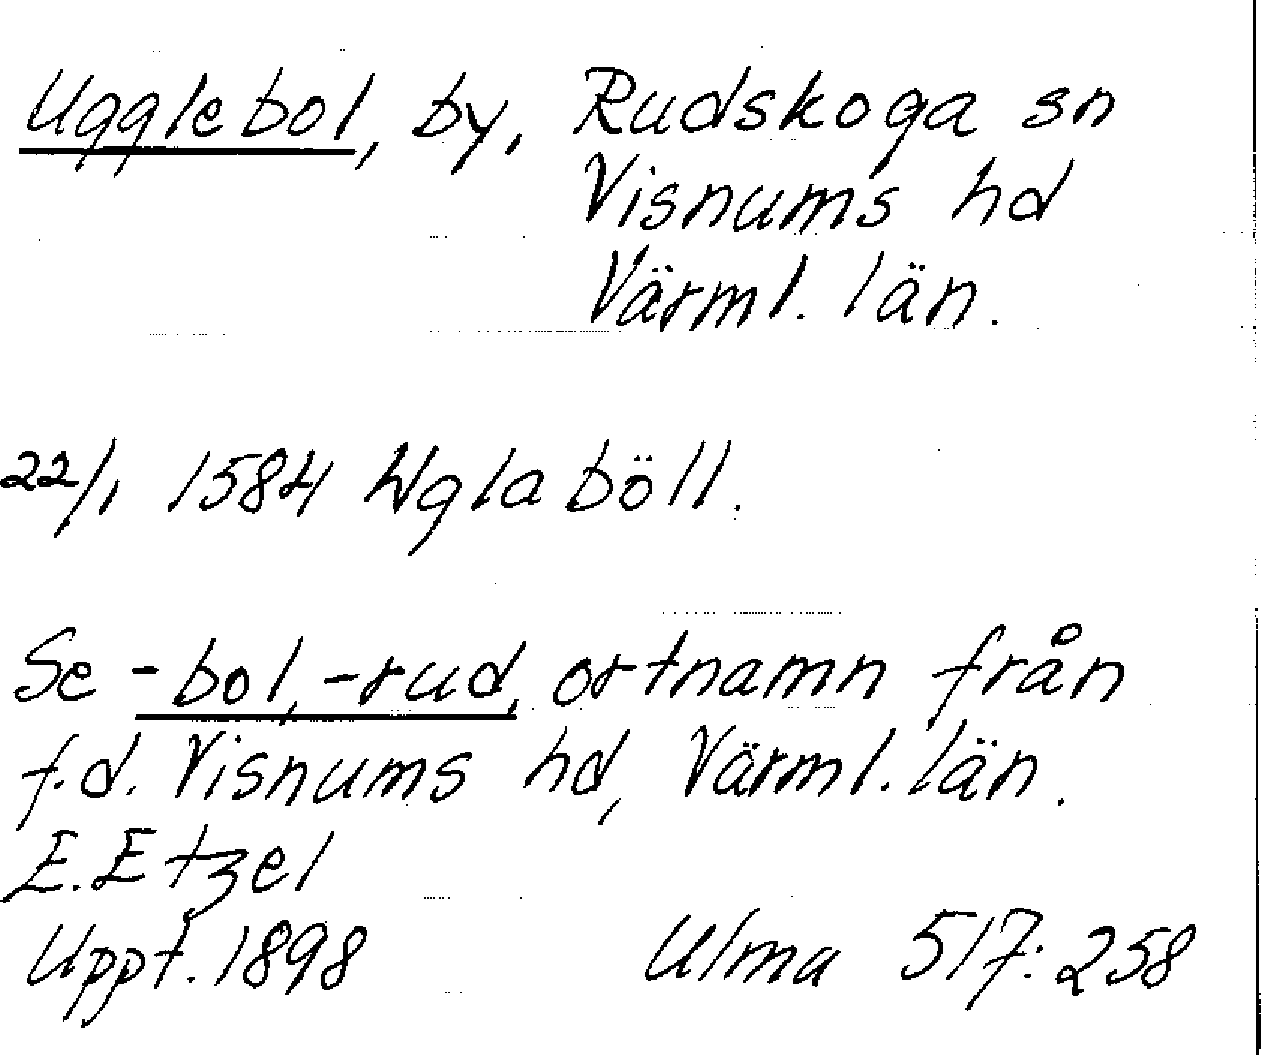 Ugglebol, by, Rudskoga sn
Visnums hd
Värml. län.
22/1 1584 Wgla böll.
Se -bol, -rud, ortnamn från
f.d. Visnums hd, Värml. län.
E. Etzel
Uppt. 1898 Ulma 517:258